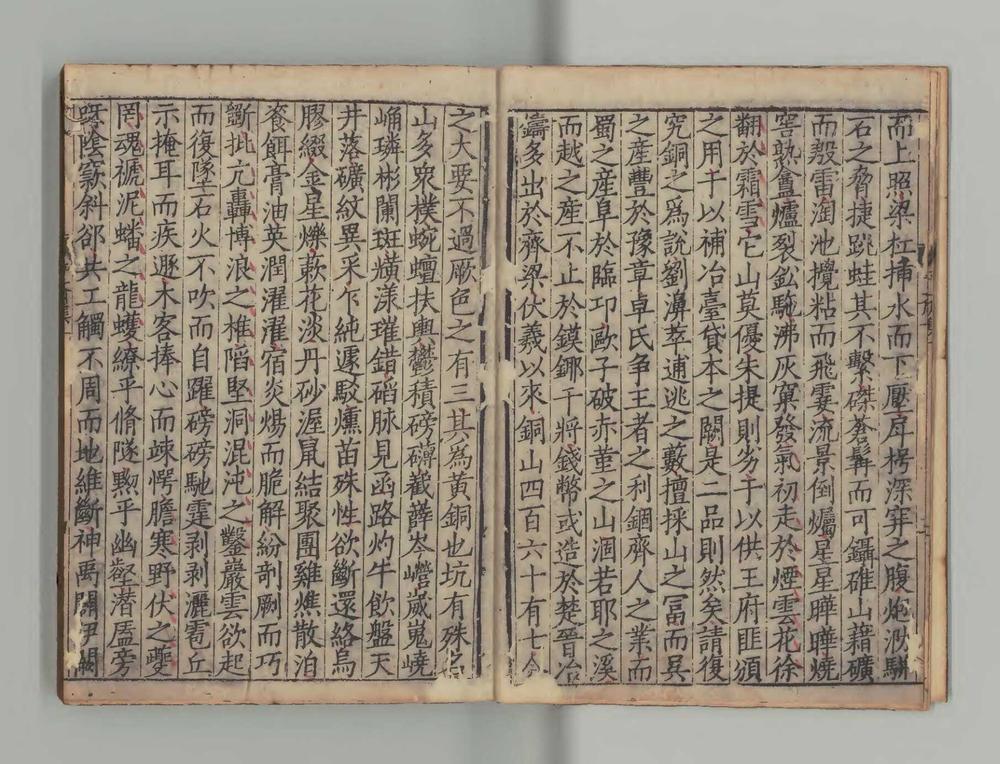 而上照梁杠捕水而下壓戽楞深穽之腹炮泐騈
石之脅捷跳蛙其不繫磔蒼髯而可鑷碓山藉礦
而殷雷淘池攪粘而飛霎流景倒爥星星曄曄燒
窖熟盦爐裂鈆駞沸灰窠發氣初走於煙雲花徐
翻於霜雪它山莫優朱提則劣于以供王府匪頒
之用于以補冶臺貸本之闕是二品則然矣請復
究銅之爲說劉濞萃逋逃之藪擅採山之冨而吴
之産豐於豫章卓氏争王者之利錮齊人之業而
蜀之産阜於臨卭歐子破赤堇之山涸若耶之溪
而越之産不止於鏌鎁干將錢幣或造於楚晉冶
鑄多出於齊梁伏羲以來銅山四百六十有七今
之大要不過厥色之有三其為黄銅也坑有殊名
山多衆樸蜿蟺扶輿鬱積磅礴嶻薛岑巆嵗嵬嶢
崅璘彬闌斑爌漾璀錯磘脉見函路灼牛飲盤天
井落礦紋異采乍純遽駁燻苗殊性欲斷還絡烏
膠綴金星爍蔌花淡丹砂渥鼠結聚團雞燋散泊
餈餌膏油英潤濯濯宿炎煬而脆解紛剞劂而巧
斵批亢轟博浪之椎陷堅洞混沌之鑿巖雲欲起
而復墜石火不吹而自躍磅磅馳霆剥剥灑雹丘
示掩耳而疾遯木客捧心而竦愕膽寒野伏之夔
罔魂褫泥蟠之龍蠼繚乎脩隧黝乎幽壑潜厓旁
呀陰竅斜郤共工觸不周而地維斷神禹闢伊闕